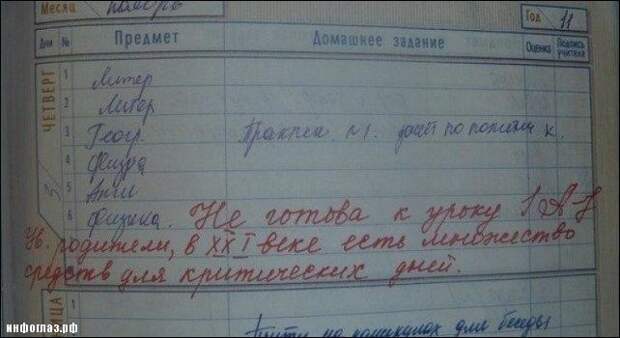 Месяц ноябрь Год 11
Дни № Предмет Домашнее задание Оценка Подпись учителя
ЧЕТВЕРГ 3
1 Литер
2 Литер
3 Геогр. Практич. №1.
4 Физра
5 Англ
6 Физика. Не готова к уроку
Ув. родители, в XXI веке есть множество
средств для критических дней.
1
на каникулах для беседы
инфоглаз.рф